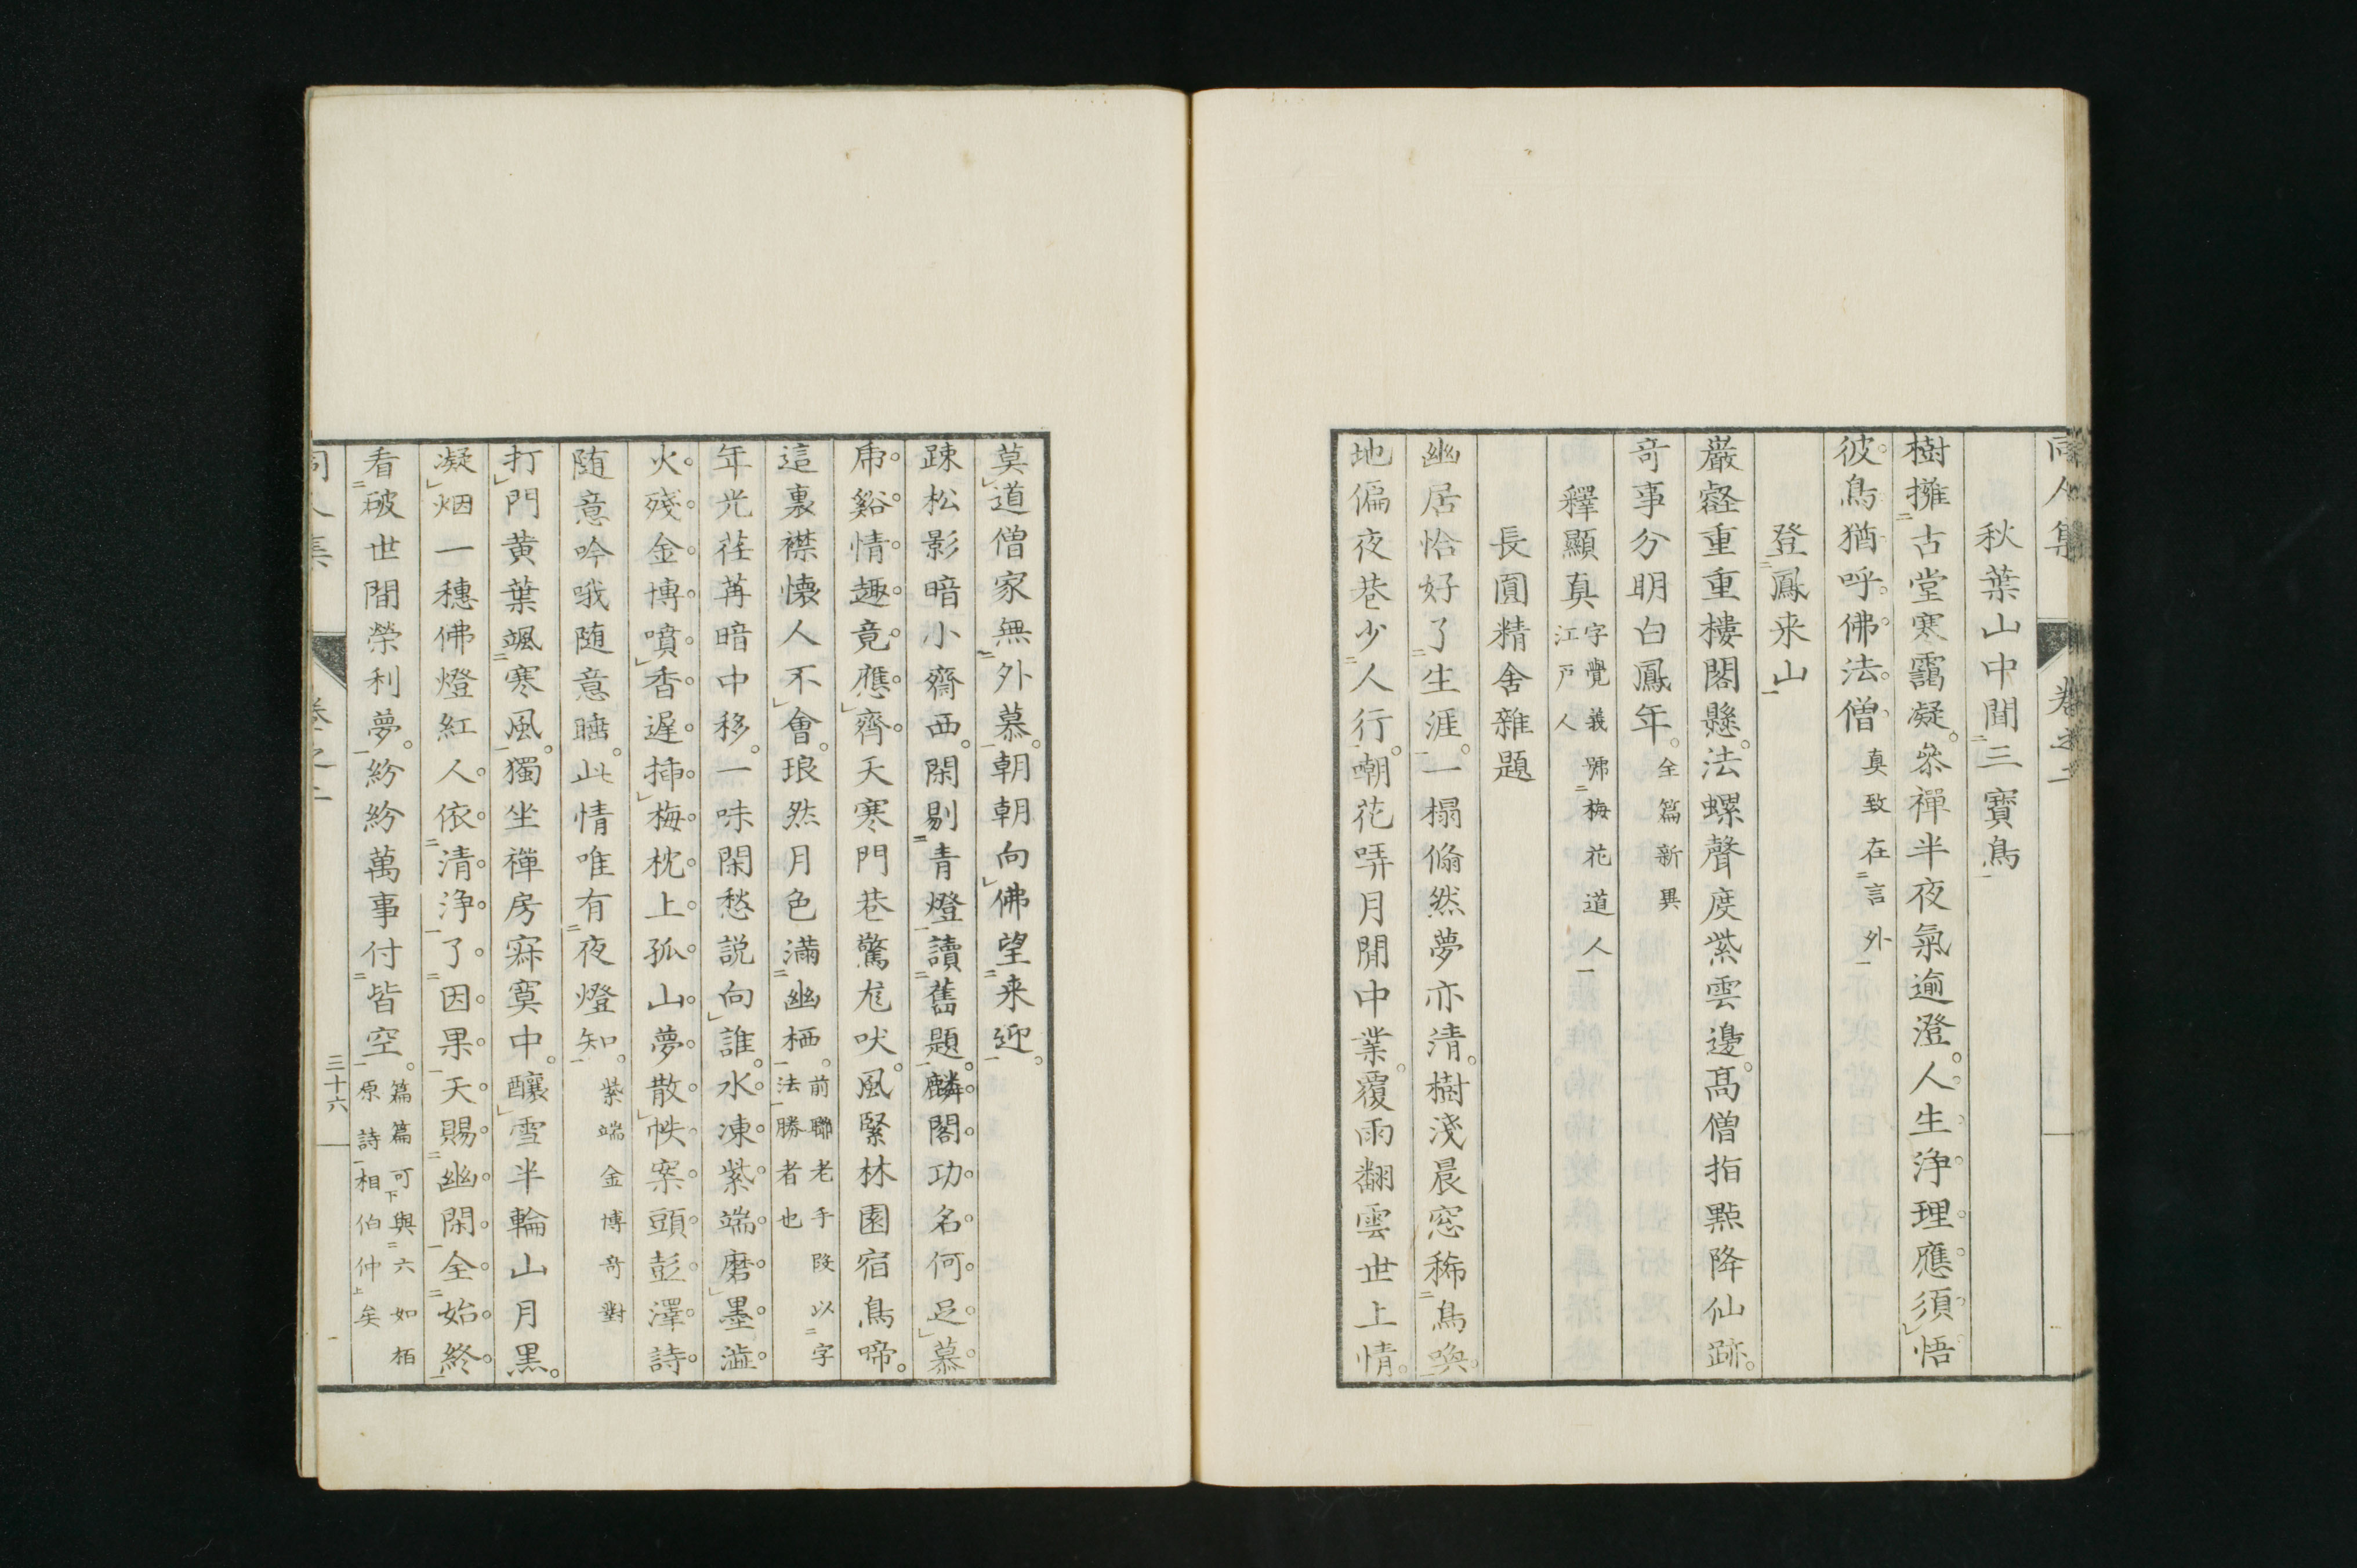 同人集 卷之二
秋葉山中聞三寶鳥
樹擁古堂寒靄凝。參禪半夜氣逾澄。人生浄理應須悟
彼鳥猶呼佛法僧 真致在言外
登鳳来山
巌壑重重樓閣懸。法螺聲度紫雲邊。髙僧指點降仙跡。
竒事分明白鳳年。 全篇新異
釋顯真 字覺義號梅花道人
江戸人
長圓精舍雜題
幽居恰好了生涯。一榻翛然夢亦清。樹淺晨窓稀鳥喚
地偏夜巷少人行。嘲花哢月閒中業。覆雨翻雲世上情。
莫道僧家無外慕。朝朝向佛望来迎。
踈松影暗小齋西。閑剔青燈讀舊題。麟閣功名何足慕
乕谿情趣竟應齊。天寒門巷驚尨吠。風緊林園宿鳥啼。
這裏襟懐人不會。琅然月色滿幽栖。 前聯老手段以字
法勝者也
年光荏苒暗中移。一味閑愁説向誰。水凍紫端磨墨澁
火殘金博噴香遅。挿梅枕上孤山夢。散帙案頭彭澤詩
随意吟哦随意睡。此情唯有夜燈知。 紫端金博竒對
打門黄葉颯寒風。獨坐禪房寂寞中。釀雪半輪山月黒。
凝烟一穗佛燈紅。人依清浄了因果。天賜幽閑全始終
看破世間榮利夢。紛紛萬事付皆空。 篇篇可與六如栢
原詩相伯仲矣
三十六